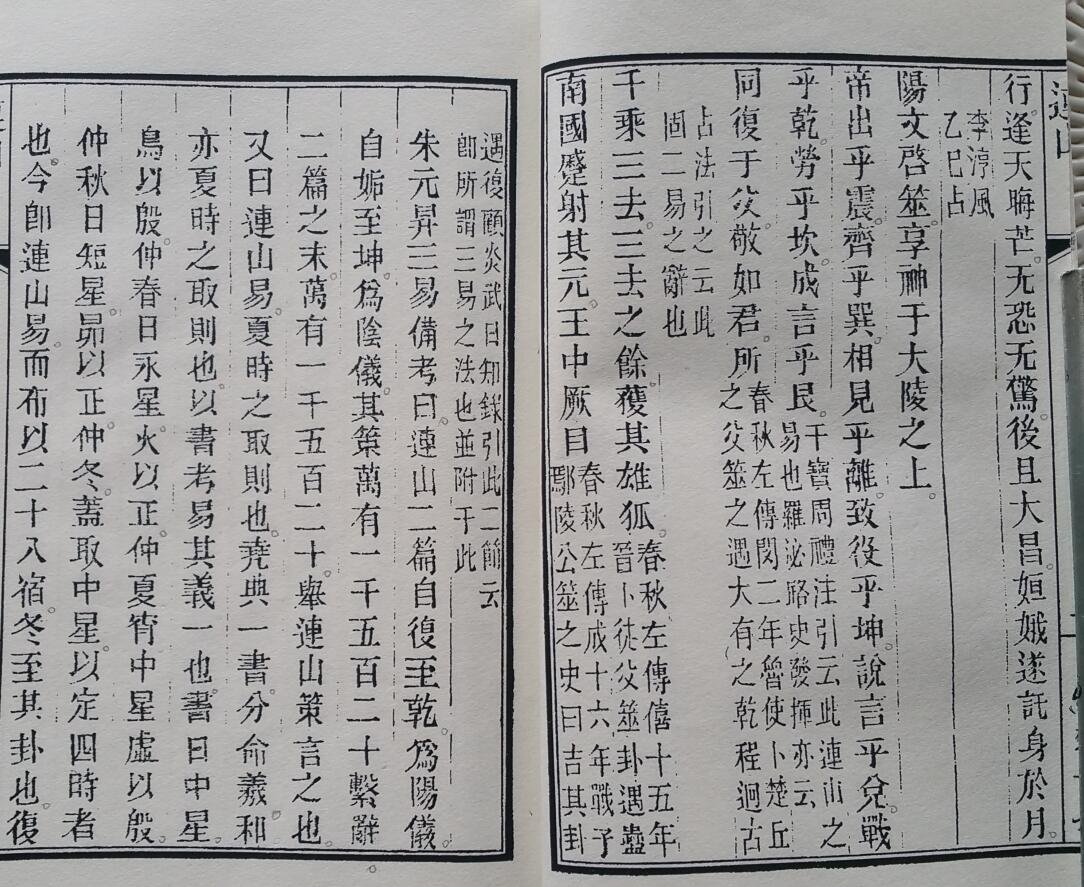 連山
行逢天晦芒。无恐无驚。後且大昌。姮娥遂託身於月。
李淳風
乙巳占
陽文啓筮。享神于大陵之上。
帝出乎震。齊乎巽。相見乎離。致役乎坤。說言乎兌。戰
乎乾。勞乎坎。成言乎艮。干寶周禮注引云此連山之
易也羅泌路史發揮亦云
同復于父。敬如君。所春秋左傳閔二年魯使卜楚丘
之父筮之遇大有之乾程迥古
占法引之云此
固二易之辭也
千乘三去。三去之餘。獲其雄狐。春秋左傳僖十五年
晉卜徒父筮卦遇蠱
南國蹙。射其元。王中厥目春秋左傳成十六年戰于
鄢陵公筮之史曰吉其卦
遇復顧炎武日知錄引此二節云
即所謂三易之法也並附于此
朱元昇三易備考曰。連山二篇。自復至乾。爲陽儀。
自姤至坤。爲陰儀。其策萬有一千五百二十。繫辭
二篇之末。萬有一千五百二十。舉連山策言之也。
又曰連山易。夏時之取則也。堯典一書。分命羲和
亦夏時之取則也。以書考易。其義一也。書曰中星
鳥。以殷仲春。日永星火。以正仲夏。宵中星虛。以殷
仲秋。日短星昴。以正仲冬。蓋取中星。以定四時者
也。今卽連山易。而布以二十八宿。冬至其卦也。復